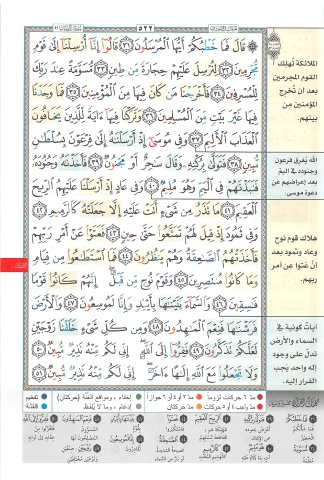 ٥٢٢
۞ قَالَ فَمَا خَطْبُكُمْ أَيُّهَا الْمُرْسَلُونَ ٣١ قَالُوا إِنَّا أُرْسِلْنَا إِلَىٰ قَوْمٍ
مُّجْرِمِينَ ٣٢ لِنُرْسِلَ عَلَيْهِمْ حِجَارَةً مِّن طِينٍ ٣٣ مُّسَوَّمَةً عِندَ رَبِّكَ
لِلْمُسْرِفِينَ ٣٤ فَأَخْرَجْنَا مَن كَانَ فِيهَا مِنَ الْمُؤْمِنِينَ ٣٥ فَمَا وَجَدْنَا
فِيهَا غَيْرَ بَيْتٍ مِّنَ الْمُسْلِمِينَ ٣٦ وَتَرَكْنَا فِيهَا آيَةً لِّلَّذِينَ يَخَافُونَ
الْعَذَابَ الْأَلِيمَ ٣٧ وَفِي مُوسَىٰ إِذْ أَرْسَلْنَاهُ إِلَىٰ فِرْعَوْنَ بِسُلْطَانٍ
مُّبِينٍ ٣٨ فَتَوَلَّىٰ بِرُكْنِهِ وَقَالَ سَاحِرٌ أَوْ مَجْنُونٌ ٣٩ فَأَخَذْنَاهُ وَجُنُودَهُ
فَنَبَذْنَاهُمْ فِي الْيَمِّ وَهُوَ مُلِيمٌ ٤٠ وَفِي عَادٍ إِذْ أَرْسَلْنَا عَلَيْهِمُ الرِّيحَ
الْعَقِيمَ ٤١ مَا تَذَرُ مِن شَيْءٍ أَتَتْ عَلَيْهِ إِلَّا جَعَلَتْهُ كَالرَّمِيمِ ٤٢
وَفِي ثَمُودَ إِذْ قِيلَ لَهُمْ تَمَتَّعُوا حَتَّىٰ حِينٍ ٤٣ فَعَتَوْا عَنْ أَمْرِ رَبِّهِمْ
فَأَخَذَتْهُمُ الصَّاعِقَةُ وَهُمْ يَنظُرُونَ ٤٤ فَمَا اسْتَطَاعُوا مِن قِيَامٍ
وَمَا كَانُوا مُنتَصِرِينَ ٤٥ وَقَوْمَ نُوحٍ مِّن قَبْلُ إِنَّهُمْ كَانُوا قَوْمًا
فَاسِقِينَ ٤٦ وَالسَّمَاءَ بَنَيْنَاهَا بِأَيْيدٍ وَإِنَّا لَمُوسِعُونَ ٤٧ وَالْأَرْضَ
فَرَشْنَاهَا فَنِعْمَ الْمَاهِدُونَ ٤٨ وَمِن كُلِّ شَيْءٍ خَلَقْنَا زَوْجَيْنِ
لَعَلَّكُمْ تَذَكَّرُونَ ٤٩ فَفِرُّوا إِلَى اللَّهِ إِنِّي لَكُم مِّنْهُ نَذِيرٌ مُّبِينٌ ٥٠
وَلَا تَجْعَلُوا مَعَ اللَّهِ إِلَٰهًا آخَرَ إِنِّي لَكُم مِّنْهُ نَذِيرٌ مُّبِينٌ ٥١
الملائكة تهلك
القوم المجرمين
بعد أن تُخرج
المؤمنين من
بينهم.
الله يُغرق فرعون
وجنوده في اليمّ
بعد إعراضهم عن
دعوة موسى.
هلاك قوم نوح
وعاد وثمود بعد
أن عتوا عن أمر
ربهم.
آيات كونية في
السماء والأرض
تدلّ على وجود
إله واحد يجب
الفرار إليه.
مدّ ٦ حركات لزوماً
مدّ ٢ أو ٤ أو ٦ جوازاً
إخفاء، ومواقع الغُنّة (حركتان)
تفخيم
مدّ واجب ٤ أو ٥ حركات
مدّ حركتان
إدغام، وما لا يُلفظ
قلقلة